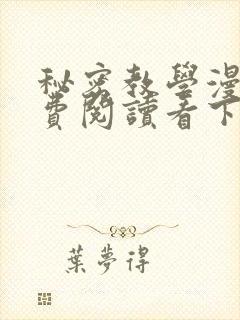 秘密教學漫
費閱讀看下
葉夢得